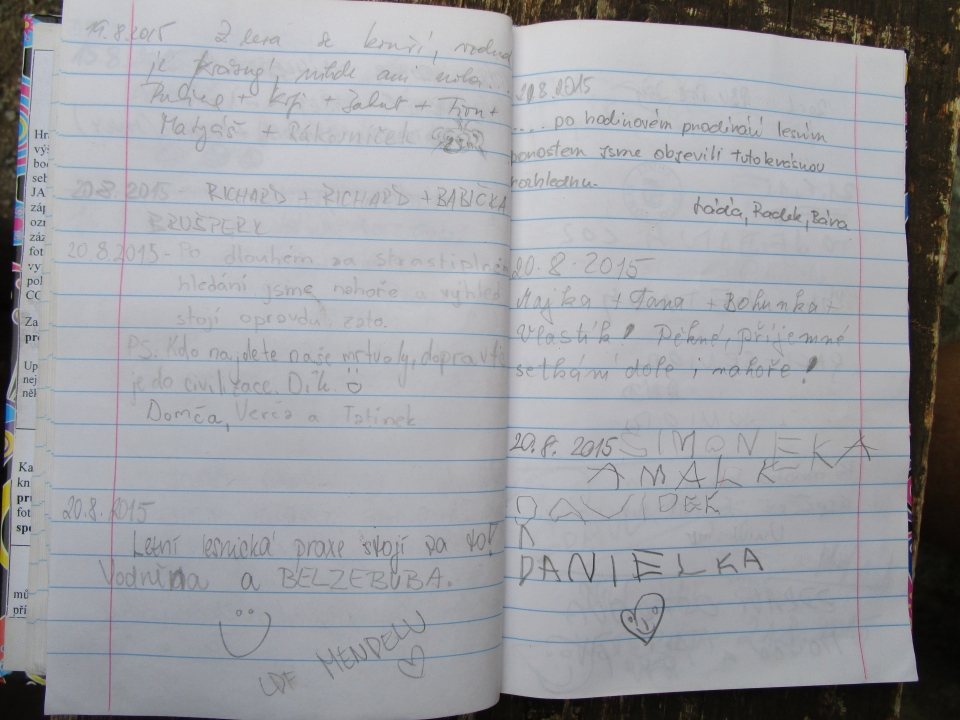 19.8.2015 Z lesa se kouří, vzduch
je krásný, nikde ani noha...
+ + + +
Matyáš + Rákosníček
20.8.2015 - RICHARD + RICHARD + BABIČKA
BRUŠPERK
20.8.2015 - Po dlouhém, za strastiplném
hledání jsme nahoře a výhled
stojí opravdu zato.
PS. Kdo najdete naše mrtvoly, dopravte
je do civilizace. Dík.
Domča, Verča a Tatínek
20.8.2015
Letní lesnická praxe stojí za to!
a BELZEBUBA.
LDF MENDELU
.8.2015
.... po hodinovém prodírání lesním
porostem jsme objevili tuto krásnou
rozhlednu.
Láďa, Radek, Bára
20.8.2015
Majka + Jana + Bohunka +
Vlastík! Pěkné, příjemné
setkání dole i nahoře!
20.8.2015 SIMONEKA
AMALK
DAVIDEK
DANIELKA
Hr
vý
bo
seb
JA
záp
ozn
záz
fot
vy
pol
CC
Za
pro
Up
nej
něk
Ka
kn
pro
fot
spe
mů
při